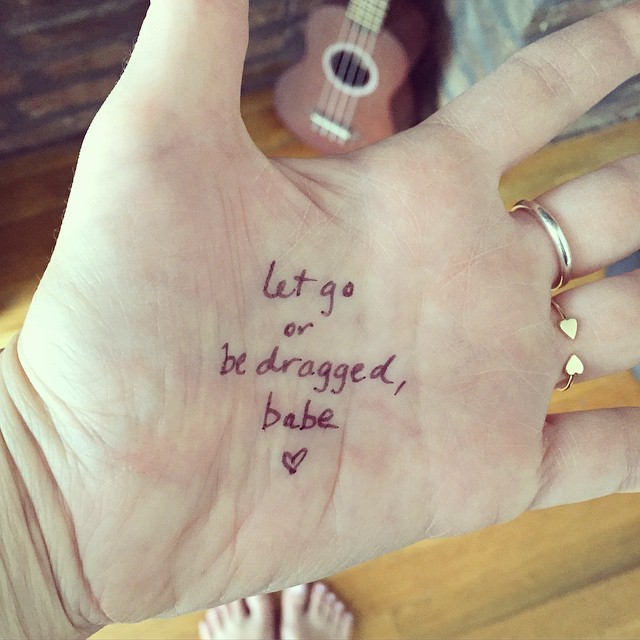 let go
or
be dragged,
babe
♡